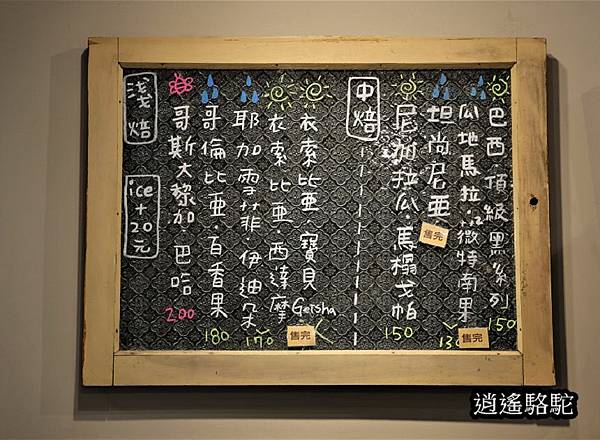 巴西頂級黑系列
150
瓜地馬拉·微特南果
售完
坦尚尼亞
售完
130
尼加拉瓜·馬榻戈帕
150
中焙
衣索比亞 寶貝
Geisha
售完
衣索比亞·西達摩
170
耶加雪菲 伊迪朵
哥倫比亞·百香果
180
哥斯大黎加·巴哈
200
淺焙
ice+20元
逍遙駱駝